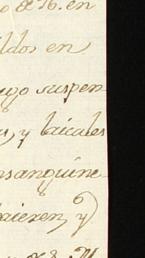 en
ldos en
ego suspen
s, y laicales
nsanguine
aieren, y